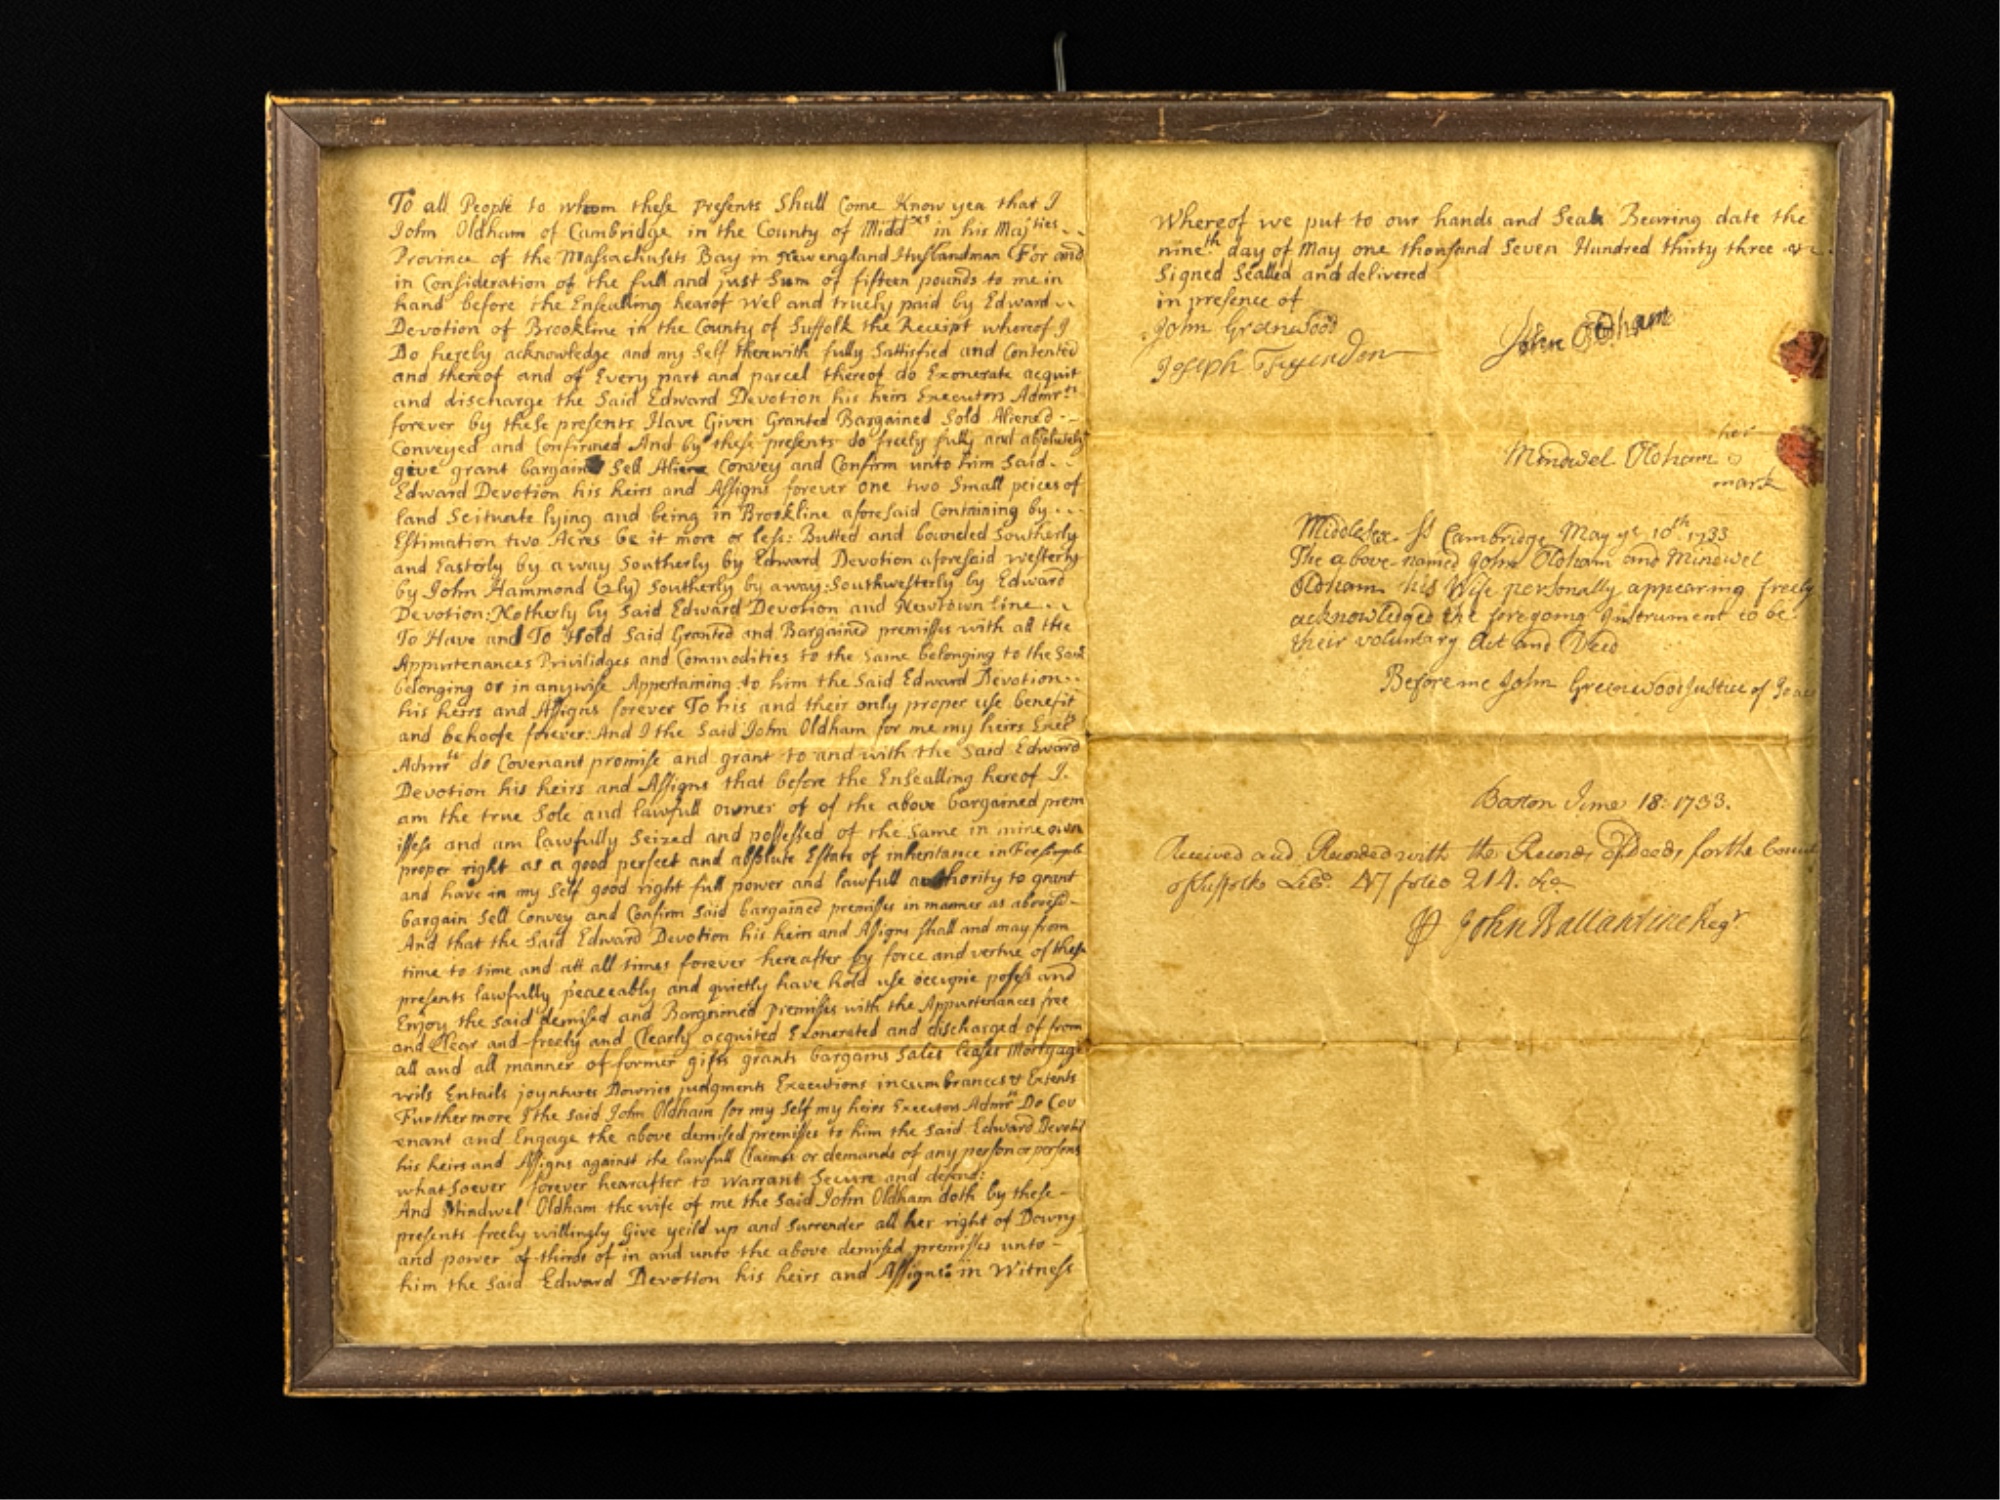 To all People to whom these presents Shall Come Know yea that I
John Oldham of Cambridge in the County of Midd^xs in his Maj^ties
Province of the Massachusets Bay in Newengland Husbandman For and
in Consideration of the full and just Sum of fifteen pounds to me in
hand before the Ensealling hearof wel and truely paid by Edward
Devotion of Brookline in the County of Suffolk the Receipt whereof I
Do hereby acknowledge and my Self therewith fully Sattisfied and Contented
and thereof and of Every part and parcel thereof do Exonerate acquit
and discharge the Said Edward Devotion his heirs Executors Admr^ts
forever by these presents Have Given Granted Bargained Sold Aliened
Conveyed and Confirmed And by these presents do freely fully and absolutely
give grant bargain Sell Aliene Convey and Confirm unto him Said
Edward Devotion his heirs and Assigns forever one two Small peices of
land Scituate lying and being in Brookline aforesaid Containing by
Estimation two Acres be it more or less: Butted and bounded Southerly
and Easterly by a way Southerly by Edward Devotion aforesaid westerly
by John Hammond (2ly) Southerly by a way: Southwesterly by Edward
Devotion: Notherly by Said Edward Devotion and Newtown line
To Have and To Hold Said Granted and Bargained premisses with all the
Appurtenances Privilidges and Commodities to the Same belonging to the Said
belonging or in anywise Appertaining to him the Said Edward Devotion
his heirs and Assigns forever To his and their only proper use benefit
and behoofe forever: And I the Said John Oldham for me my heirs Exec^rs
Admr^ts do Covenant promise and grant to and with the Said Edward
Devotion his heirs and Assigns that before the Ensealling hereof I
am the true Sole and lawfull owner of of the above bargained prem
isses and am lawfully Seized and possessed of the Same in mine own
proper right as a good perfect and absolute Estate of inheritance in Fee simple
and have in my Self good right full power and lawfull authority to grant
bargain Sell Convey and Confirm Said bargained premisses in manner as abovesd
And that the Said Edward Devotion his heirs and Assigns Shall and may from
time to time and att all times forever hereafter by force and vertue of these
presents lawfully peaceably and quietly have hold use occupie posess and
Enjoy the said demised and Bargained Premisses with the Appurtenances free
and Clear and freely and Clearly acquited Exonerated and discharged of from
all and all manner of former gifts grants bargains Sales leases Mortgage
wils Entails joyntures Dowries judgments Executions incumbrances & Extents
Furthermore I the Said John Oldham for my Self my heirs Executors Admr^ts Do Cov
enant and Engage the above demised premisses to him the Said Edward Devotion
his heirs and Assigns against the lawfull Claimes or demands of any person or persons
whatsoever forever hearafter to warrant Secure and defend:
And Mindwel Oldham the wife of me the Said John Oldham doth by these
presents freely willingly Give yeild up and Surrender all her right of Dowry
and power of thirds of in and unto the above demised premisses unto
him the Said Edward Devotion his heirs and Assigns: in Witness
Whereof we put to our hands and Seals Bearing date the
nine^th day of May one thousand Seven Hundred thirty three
Signed Sealled and delivered
in presence of
John Greenwood
Joseph
John Oldham
her
Mindwel Oldham
mark
Middlesex Ss Cambridge May ye 10^th 1733
The above-named John Oldham and Mindwel
Oldham his Wife personally appearing freely
acknowledged the foregoing Instrument to be
their voluntary Act and Deed
Before me John Greenwood Justice of Peace
Boston June 18: 1733.
Received and Recorded with the Records of Deeds for the County
of Suffolk Libo. 47 folio 214. &c
John Ballantine Reg^r